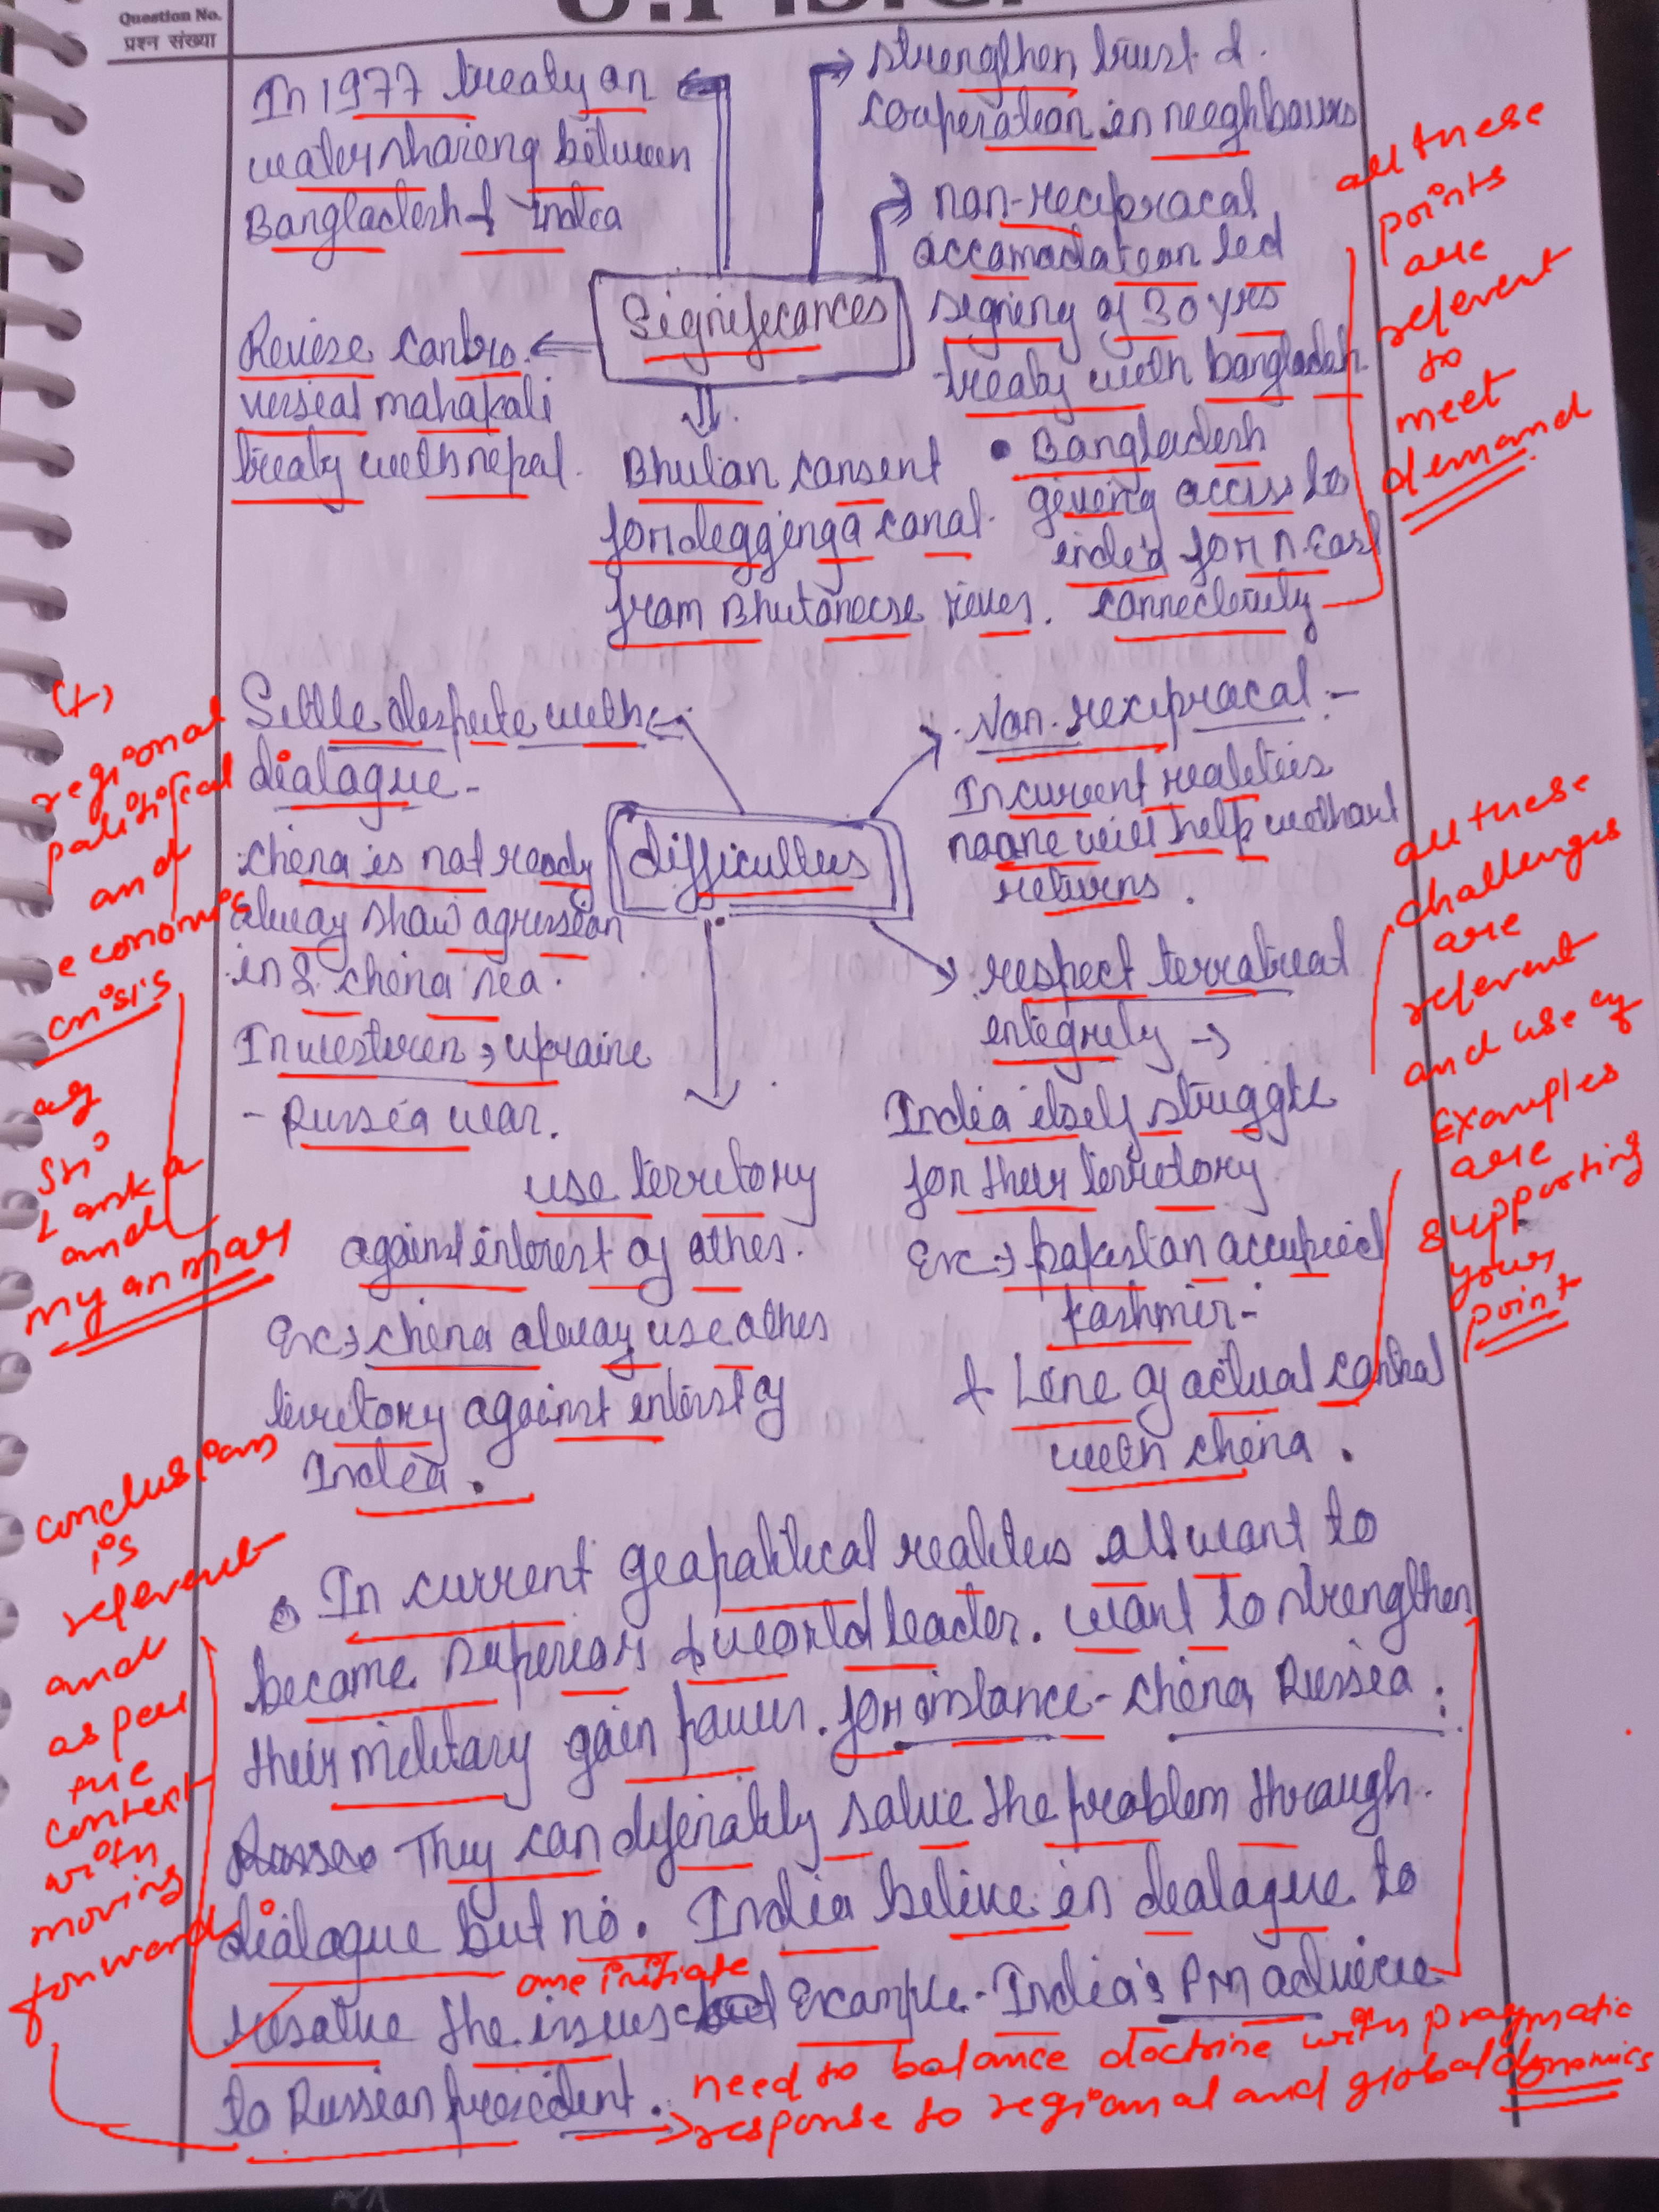 Question No.
प्रश्न संख्या
In 1977 treaty on
water sharing between
Bangladesh & India
strengthen trust &
cooperation in neeghbours
non-reciprocal
accomodation led
signing of 30 yrs
treaty with Bangladesh
Significances
Reviese contro
versial mahakali
treaty with nepal.
Bhutan consent
for degging a canal
from Bhutanecse river.
• Bangladesh
giveng access to
india for N.East
connectevity
all these
points
are
relevent
to
meet
demand
Settle despute with
dialogue -
china is not ready
alway show agression
in S. china sea.
In western → ukraine
- Russia war.
difficulties
Non-reciprocal :-
In current realities
noone will help without
returns.
respect terratireal
entegrety →
India itself struggle
for their territory
Ex → pakistan accupied
kashmir -
& Line of actual control
with china.
use territory
against interest of others.
Ex → china alway use others
territory against interst of
India.
(+)
regional
political
and
economic
crisis
eg
Sri
Lanka
and
myanmar
all these
challenges
are
relevent
and use of
Examples
are
supporting
your
point
In current geopolitical realities all want to
become superior & world leader. want to strengthen
their military gain power. for instance - china, Russia.
They can definably solve the problem through
dialogue but no. India belive in dealogue to
resolve the issues Example - India's PM advice
one initiate
to Russian president.
need to balance doctrine with pragmatic
response to regional and global dynamics
conclusion
is
relevent
and
as per
the
content
with
moving
forward